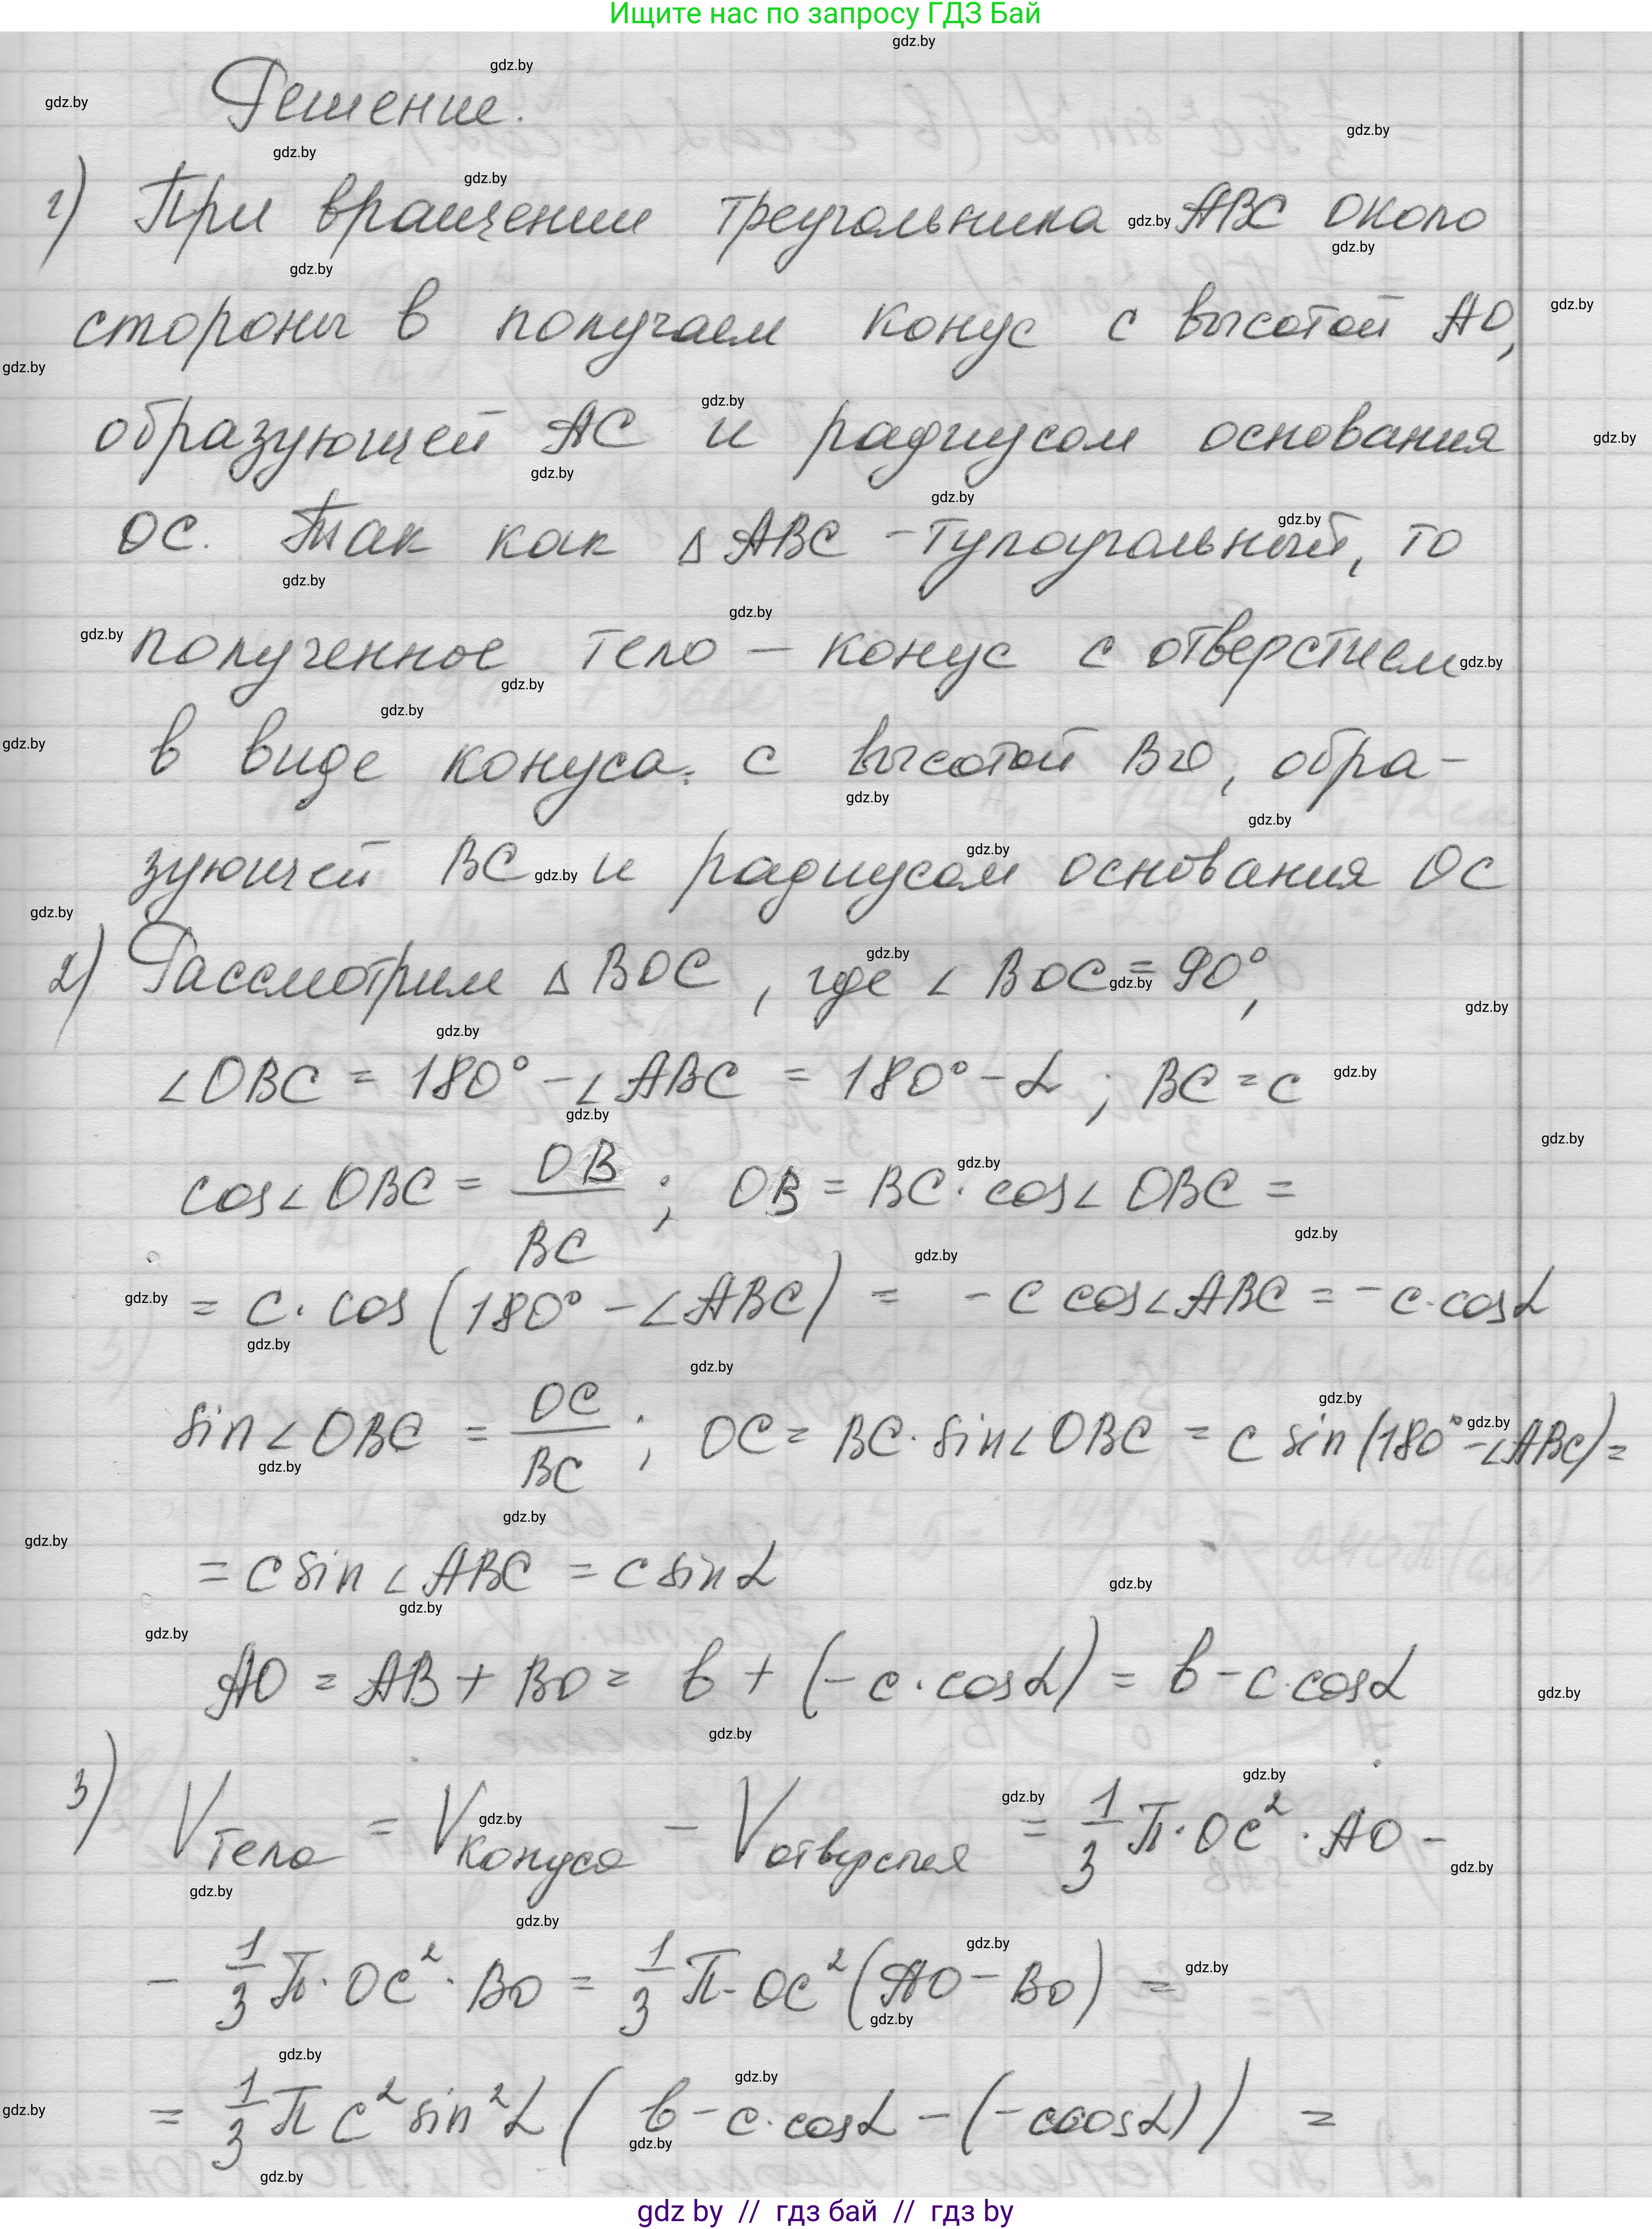 Ищите нас по запросу ГДЗ Бай
Решение.
1) При вращении треугольника ABC около
стороны b получаем конус с высотой AO,
образующей AC и радиусом основания
OC. Так как △ABC - тупоугольный, то
полученное тело — конус с отверстием
в виде конуса. с высотой BO, обра-
зующей BC и радиусом основания OC
2) Рассмотрим △BOC, где ∠BOC = 90°,
∠OBC = 180° - ∠ABC = 180° - α; BC = c
cos∠OBC = OB/BC; OB = BC · cos∠OBC =
= c · cos(180° - ∠ABC) = - c cos∠ABC = - c · cosα
sin∠OBC = OC/BC; OC = BC · sin∠OBC = c sin(180° - ∠ABC) =
= c sin∠ABC = c sinα
AO = AB + BO = b + (- c · cosα) = b - c · cosα
3) Vтела = Vконуса - Vотверстия = 1/3 π · OC² · AO -
- 1/3 π · OC² · BO = 1/3 π · OC² (AO - BO) =
= 1/3 π c² sin²α (b - c · cosα - (- c cosα)) =
gdz by // гдз бай // гдз by